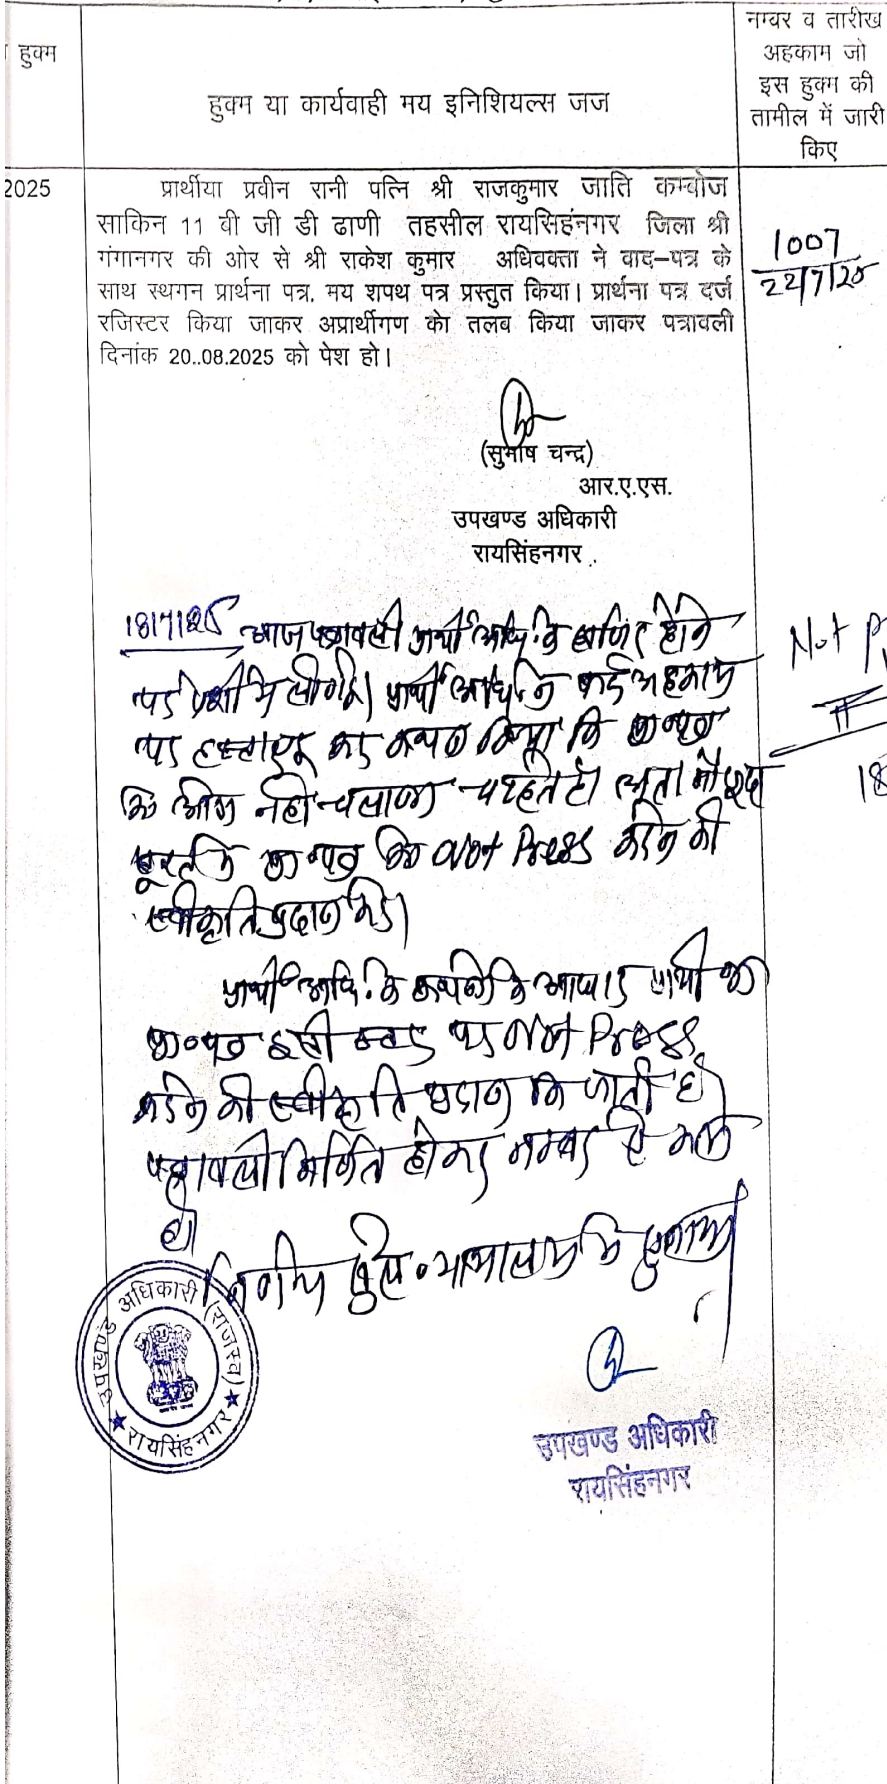 नम्वर व तारीख
हुक्म
अहकाम जो
इस हुक्म की
हुक्म या कार्यवाही मय इनिशियल्स जज
तामील में जारी
किए
2025
प्रार्थीया प्रवीन रानी पत्नि श्री राजकुमार जाति कम्बोज
साकिन 11 वी जी डी ढाणी तहसील रायसिहंनगर जिला श्री
गंगानगर की ओर से श्री राकेश कुमार अधिवक्ता ने वाद-पत्र के
साथ स्थगन प्रार्थना पत्र, मय शपथ पत्र प्रस्तुत किया। प्रार्थना पत्र दर्ज
रजिस्टर किया जाकर अप्रार्थीगण को तलब किया जाकर पत्रावली
दिनांक 20..08.2025 को पेश हो।
1007
22/7/25
(सुभाष चन्द्र)
आर.ए.एस.
उपखण्ड अधिकारी
रायसिंहनगर
18/7/25 आज पत्रावली प्रार्थी अधि. के होने
पर पेशी में ली गई। प्रार्थी
पर कर कथन किया कि
को आगे नही चलाना चाहते है।
को Not Press करने की
स्वीकृति प्रदान करे।
प्रार्थी अधि. के कथनो के आधार प्रार्थी का
इसी स्तर पर Not Press
करने की स्वीकृति प्रदान कि जाती है।
पत्रावली निर्णित होकर नम्बर से कम
हो।
निर्णय खुले न्यायालय में सुनाया
Not P
18
उपखण्ड अधिकारी (राजस्व)
रायसिंहनगर
उपखण्ड अधिकारी
रायसिंहनगर